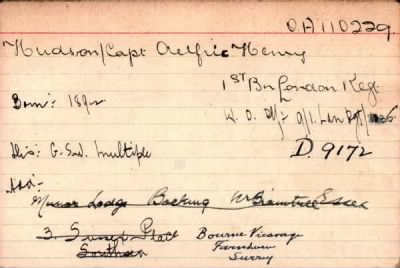 O.A 110229
Hudson/Capt Aelfric Henry
1ST Bn London Regt
Born: 1892
W.O.
Dis: G.S.W. multiple
D. 9172
Add:-
Manor Lodge Bocking Nr Braintree Essex
3. Place Bourne Vicarage
Southsea Farnham
Surrey